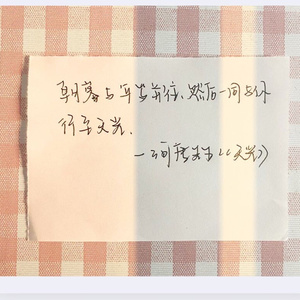 朝暮与年岁并往、然后一同与你
行至天光.
《天光》